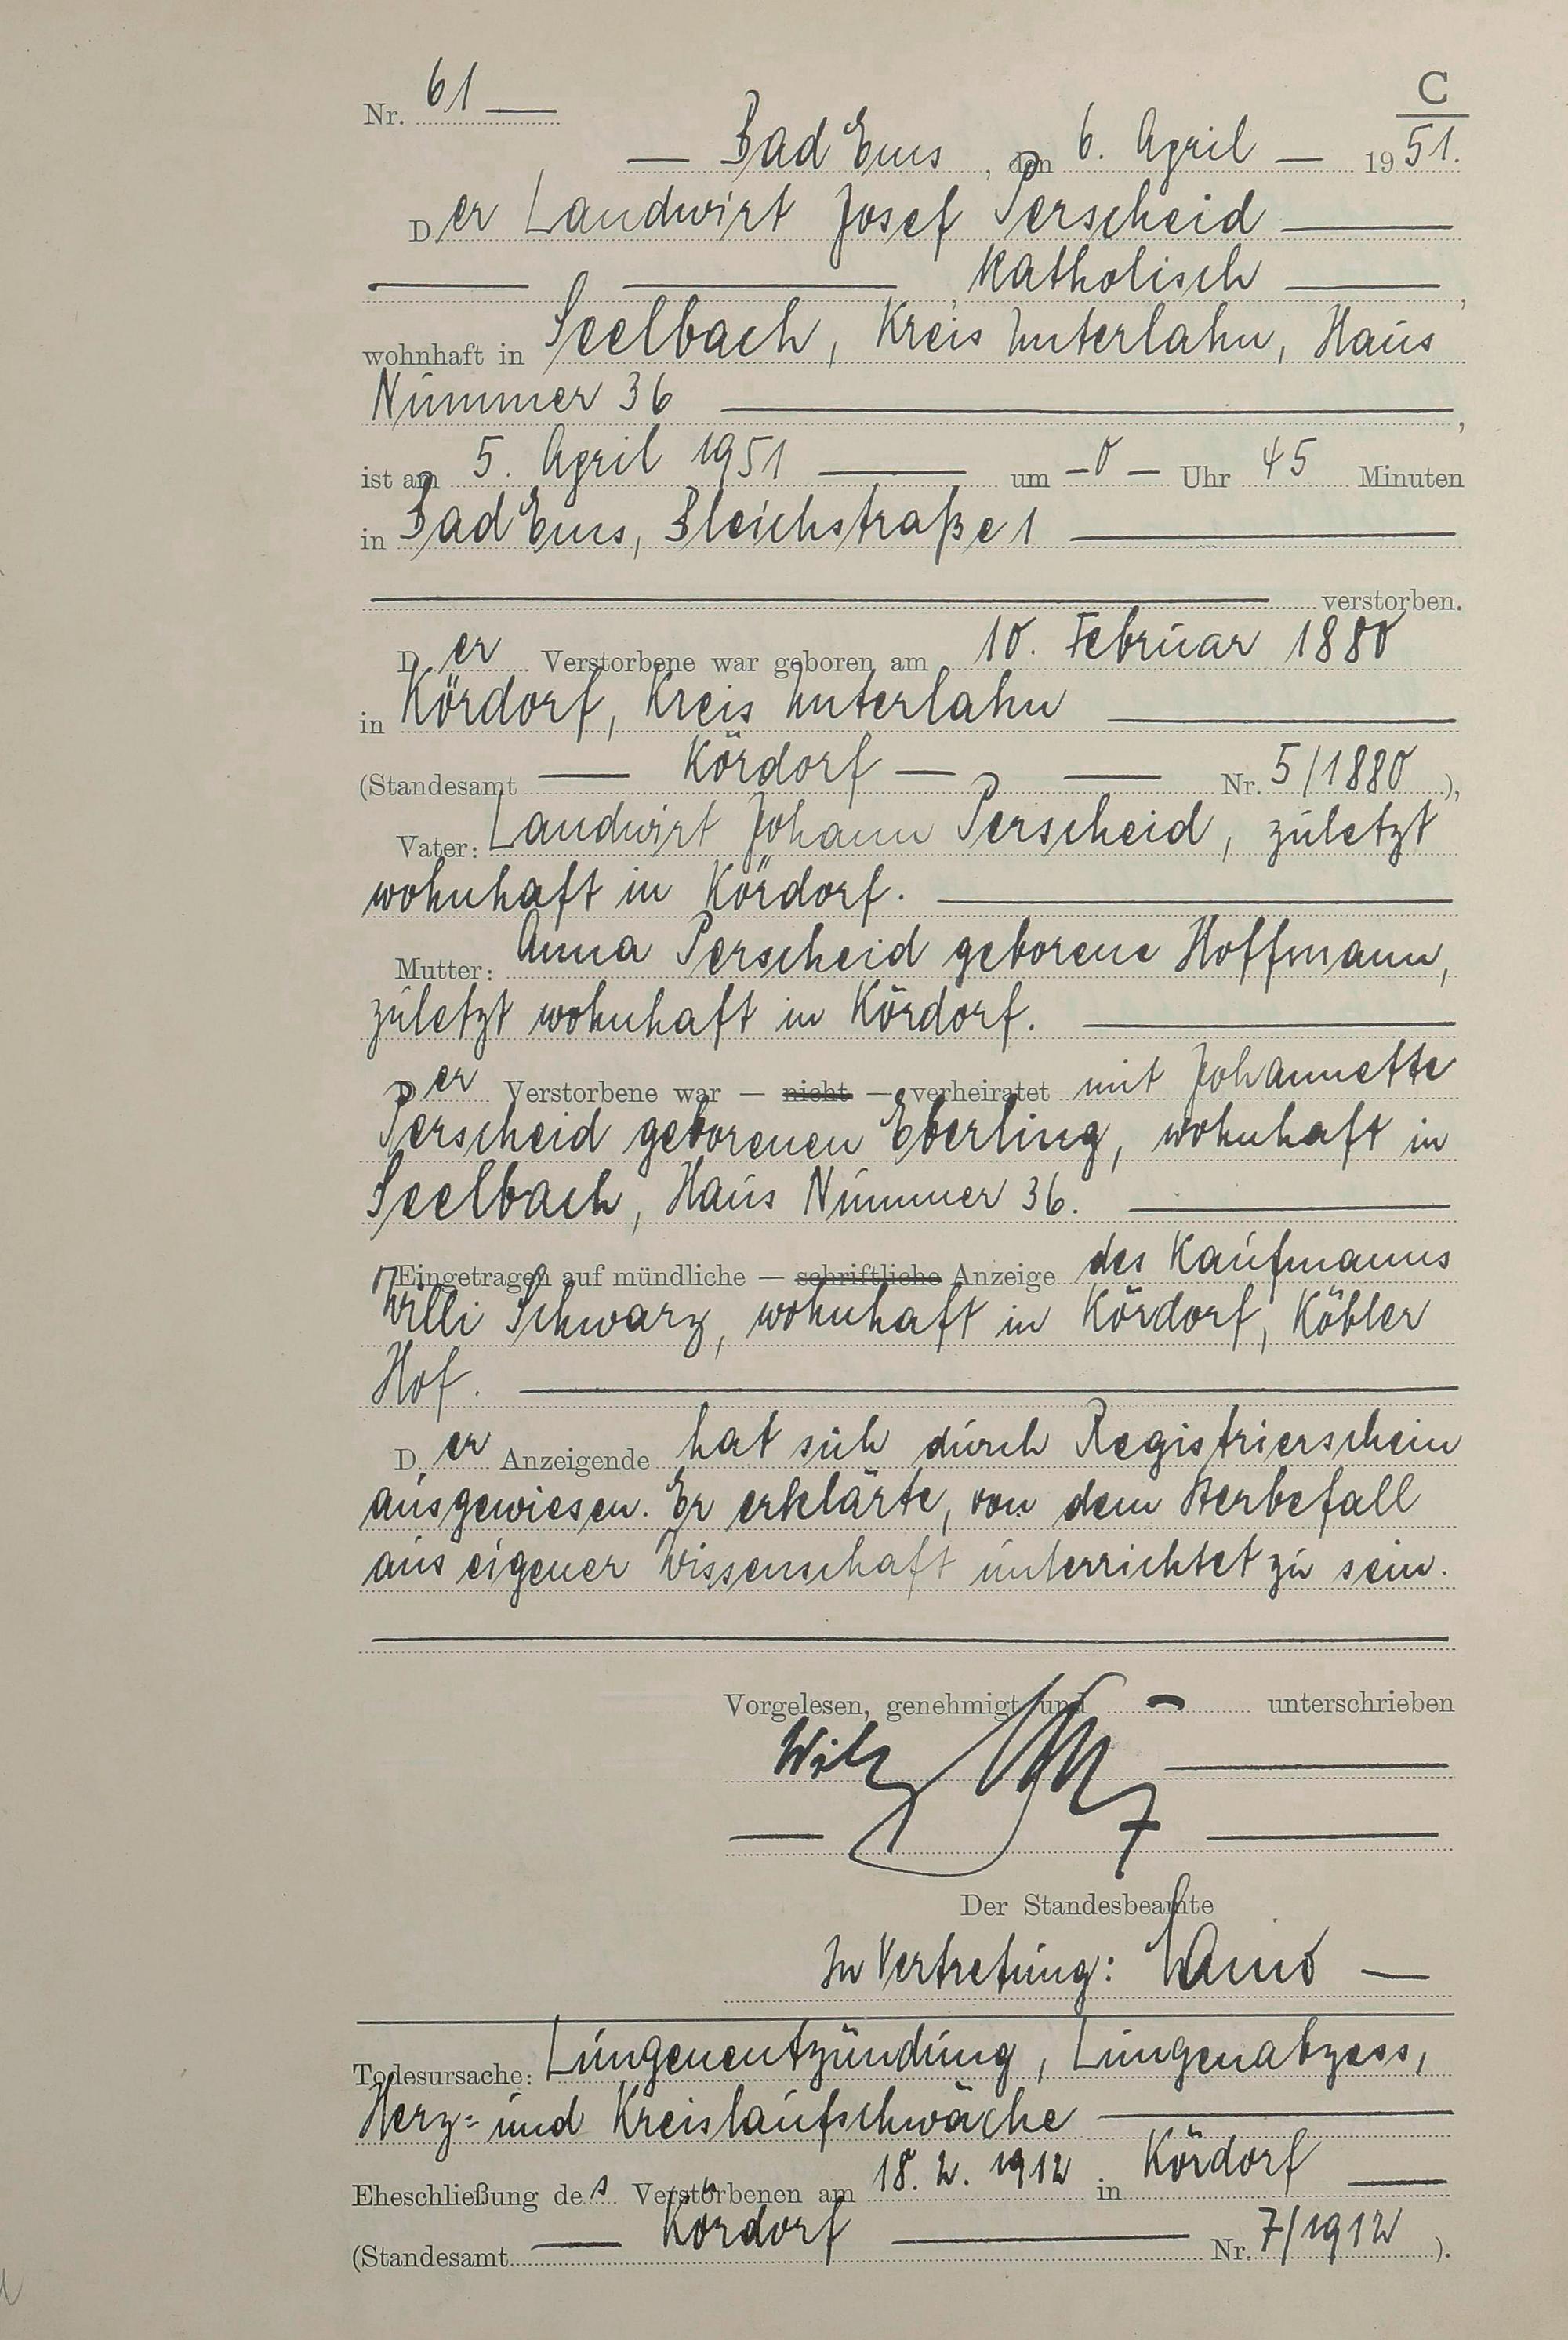 C
Nr. 61 —
— Bad Ems, den 6. April — 1951.
Der Landwirt Josef Perscheid —
— —, katholisch —,
wohnhaft in Seelbach, Kreis Unterlahn, Haus
Nummer 36 —,
ist am 5. April 1951 — um — 0 — Uhr 45 Minuten
in Bad Ems, Bleichstraße 1 —
— verstorben.
Der Verstorbene war geboren am 10. Februar 1880
in Kördorf, Kreis Unterlahn —
(Standesamt — Kördorf — — Nr. 5/1880),
Vater: Landwirt Johann Perscheid, zuletzt
wohnhaft in Kördorf. —
Mutter: Anna Perscheid geborene Hoffmann,
zuletzt wohnhaft in Kördorf. —
Der Verstorbene war — nicht — verheiratet mit Johannette
Perscheid geborenen Eberling, wohnhaft in
Seelbach, Haus Nummer 36. —
Eingetragen auf mündliche — schriftliche Anzeige des Kaufmanns
Willi Schwarz, wohnhaft in Kördorf, Köbler
Hof. —
Der Anzeigende hat sich durch Registrierschein
ausgewiesen. Er erklärte, von dem Sterbefall
aus eigener Wissenschaft unterrichtet zu sein.
Vorgelesen, genehmigt und — unterschrieben
Der Standesbeamte
In Vertretung: —
Todesursache: Lungenentzündung, Lungenabzess,
Herz- und Kreislaufschwäche —
Eheschließung des Verstorbenen am 18. 2. 1912 in Kördorf —
(Standesamt — Kördorf — Nr. 7/1912).